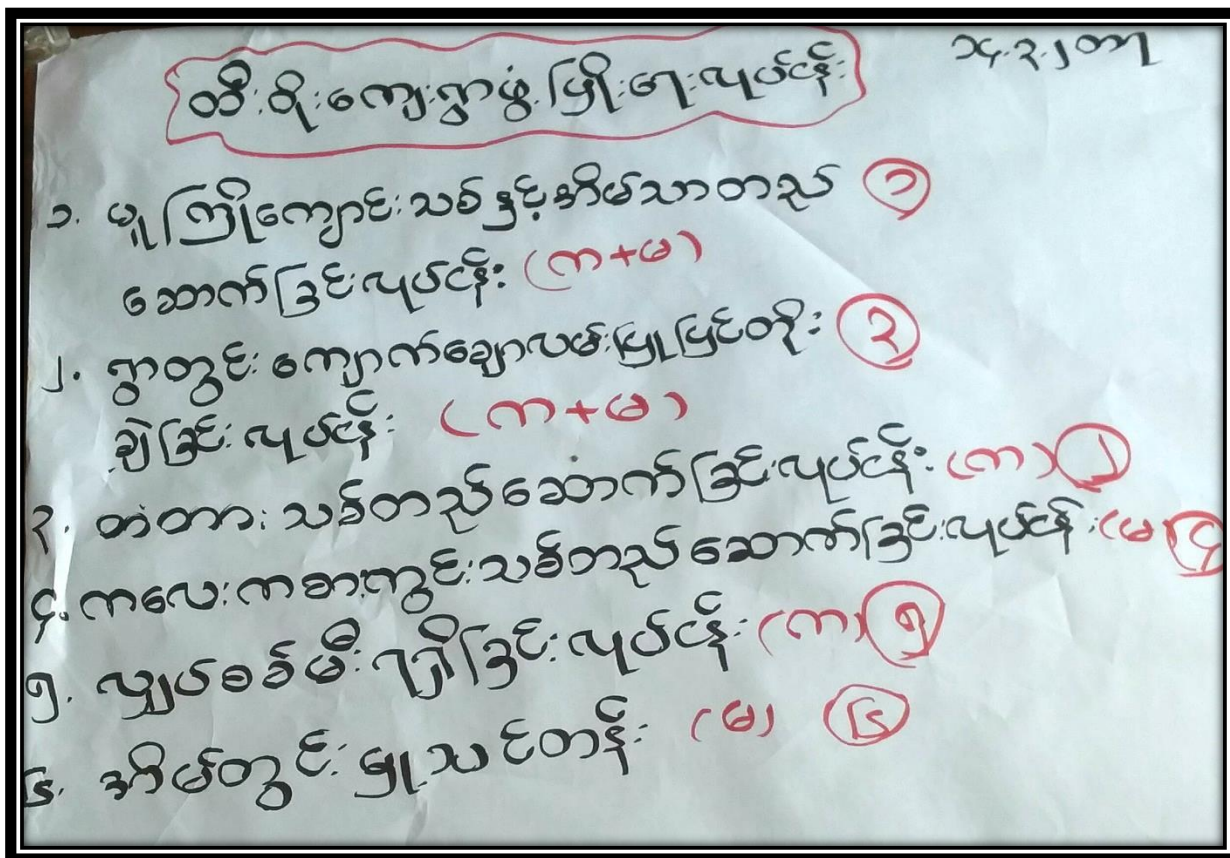 ထီးရိုးကျေးရွာဖွံ့ဖြိုးရေးလုပ်ငန်း
၁. မူကြိုကျောင်းသစ်နှင့်အိမ်သာတည် ၁
ဆောက်ခြင်းလုပ်ငန်း (က+မ)
၂. ရွာတွင်းကျောက်ချောလမ်းပြုပြင်တိုး ၃
ချဲ့ခြင်းလုပ်ငန်း (က+မ)
၃. တံတားသစ်တည်ဆောက်ခြင်းလုပ်ငန်း (က) ၂
၄. ကလေးကစားကွင်းသစ်တည်ဆောက်ခြင်းလုပ်ငန်း (မ) ၄
၅. လျှပ်စစ်မီးရရှိခြင်းလုပ်ငန်း (က) ၅
၆. အိမ်တွင်းမှုသင်တန်း (မ) ၆